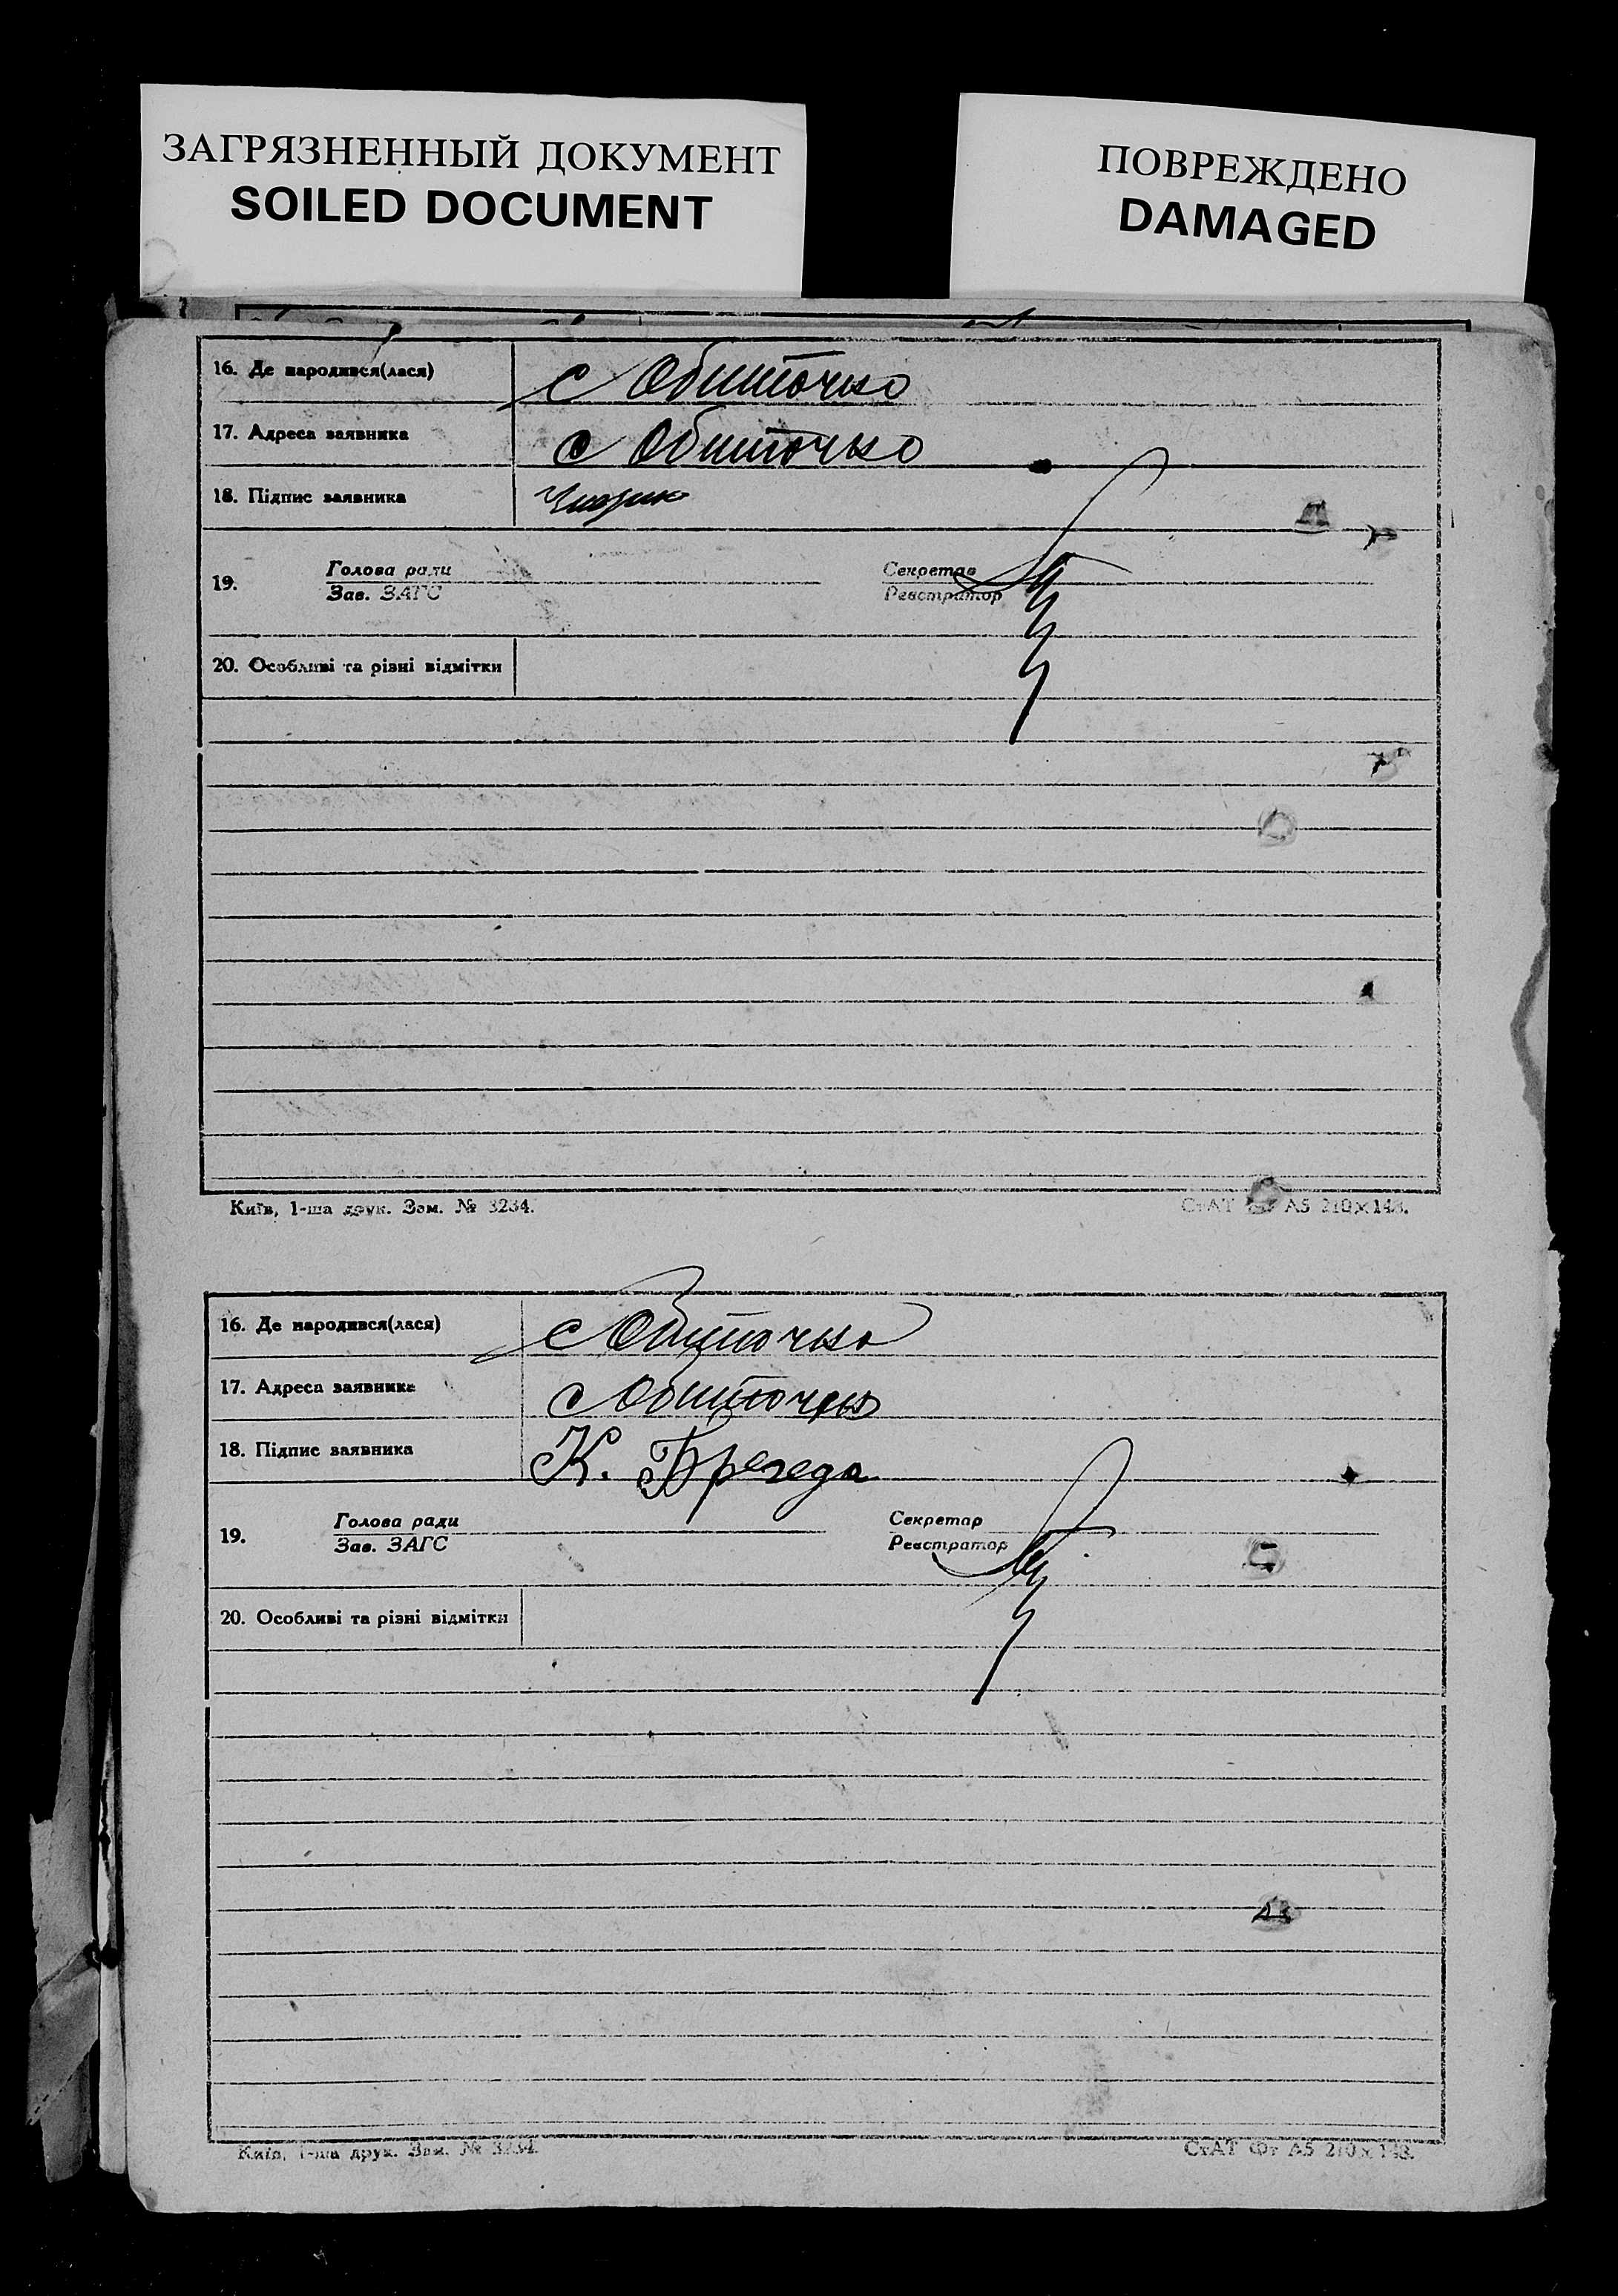 ЗАГРЯЗНЕННЫЙ ДОКУМЕНТ
SOILED DOCUMENT
ПОВРЕЖДЕНО
DAMAGED
16. Де народився(лася) с Обиточно
17. Адреса заявника с Обиточно
18. Підпис заявника
19. Голова ради Секретар
Зав. ЗАГС Реєстратор
20. Особливі та різні відмітки
Київ, 1-ша друк. Зам. № 3234. СтАТ А5 210×148.
16. Де народився(лася) с Обиточно
17. Адреса заявника с Обиточно
18. Підпис заявника К. Брегеда
19. Голова ради Секретар
Зав. ЗАГС Реєстратор
20. Особливі та різні відмітки
Київ, 1-ша друк. Зам. № 3234. СтАТ Фт А5 210×148.